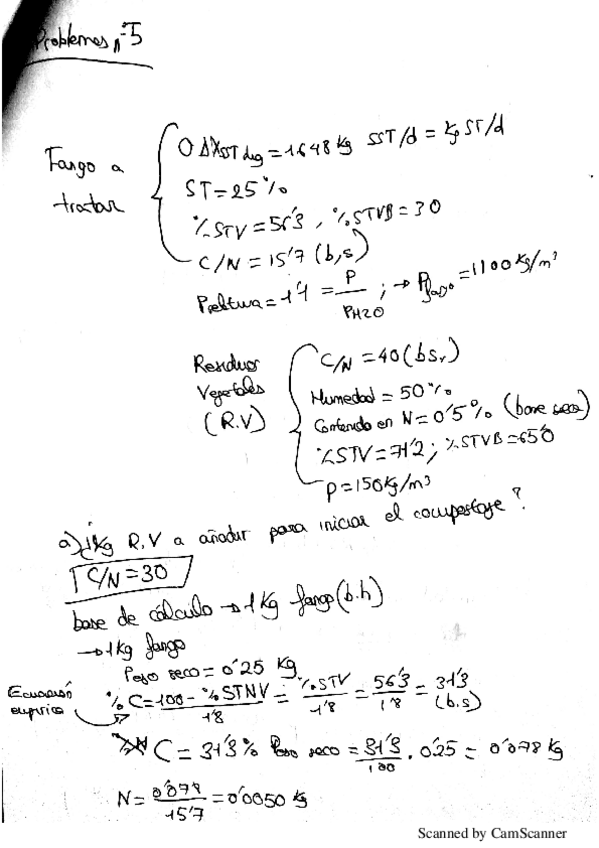 Problemas nº5
Fango a tratar
O ΔXSST dig = 1648 kg SST/d = kg ST/d
ST = 25 %
% STV = 56'3 , % STVB = 30
C/N = 15'7 (b,s)
ρrelativa = 1'1 = ρ / ρH2O ; → ρfango = 1100 kg/m³
Residuos Vegetales (R.V)
C/N = 40 (bs,)
Humedad = 50 %
Contenido en N = 0'5 % (base seca)
% STV = 71'2 ; % STVB = 65'0
ρ = 150 kg/m³
a) ¿kg R.V a añadir para iniciar el compostaje?
C/N = 30
base de cálculo → 1 kg fango (b.h)
→ 1 kg fango
Peso seco = 0'25 kg
Ecuación empírica
% C = 100 - % STNV / 1'8 = % STV / 1'8 = 56'3 / 1'8 = 31'3 (b.s)
C = 31'3 % Peso seco = 31'3 / 100 · 0'25 = 0'078 kg
N = 0'078 / 15'7 = 0'0050 kg
Scanned by CamScanner